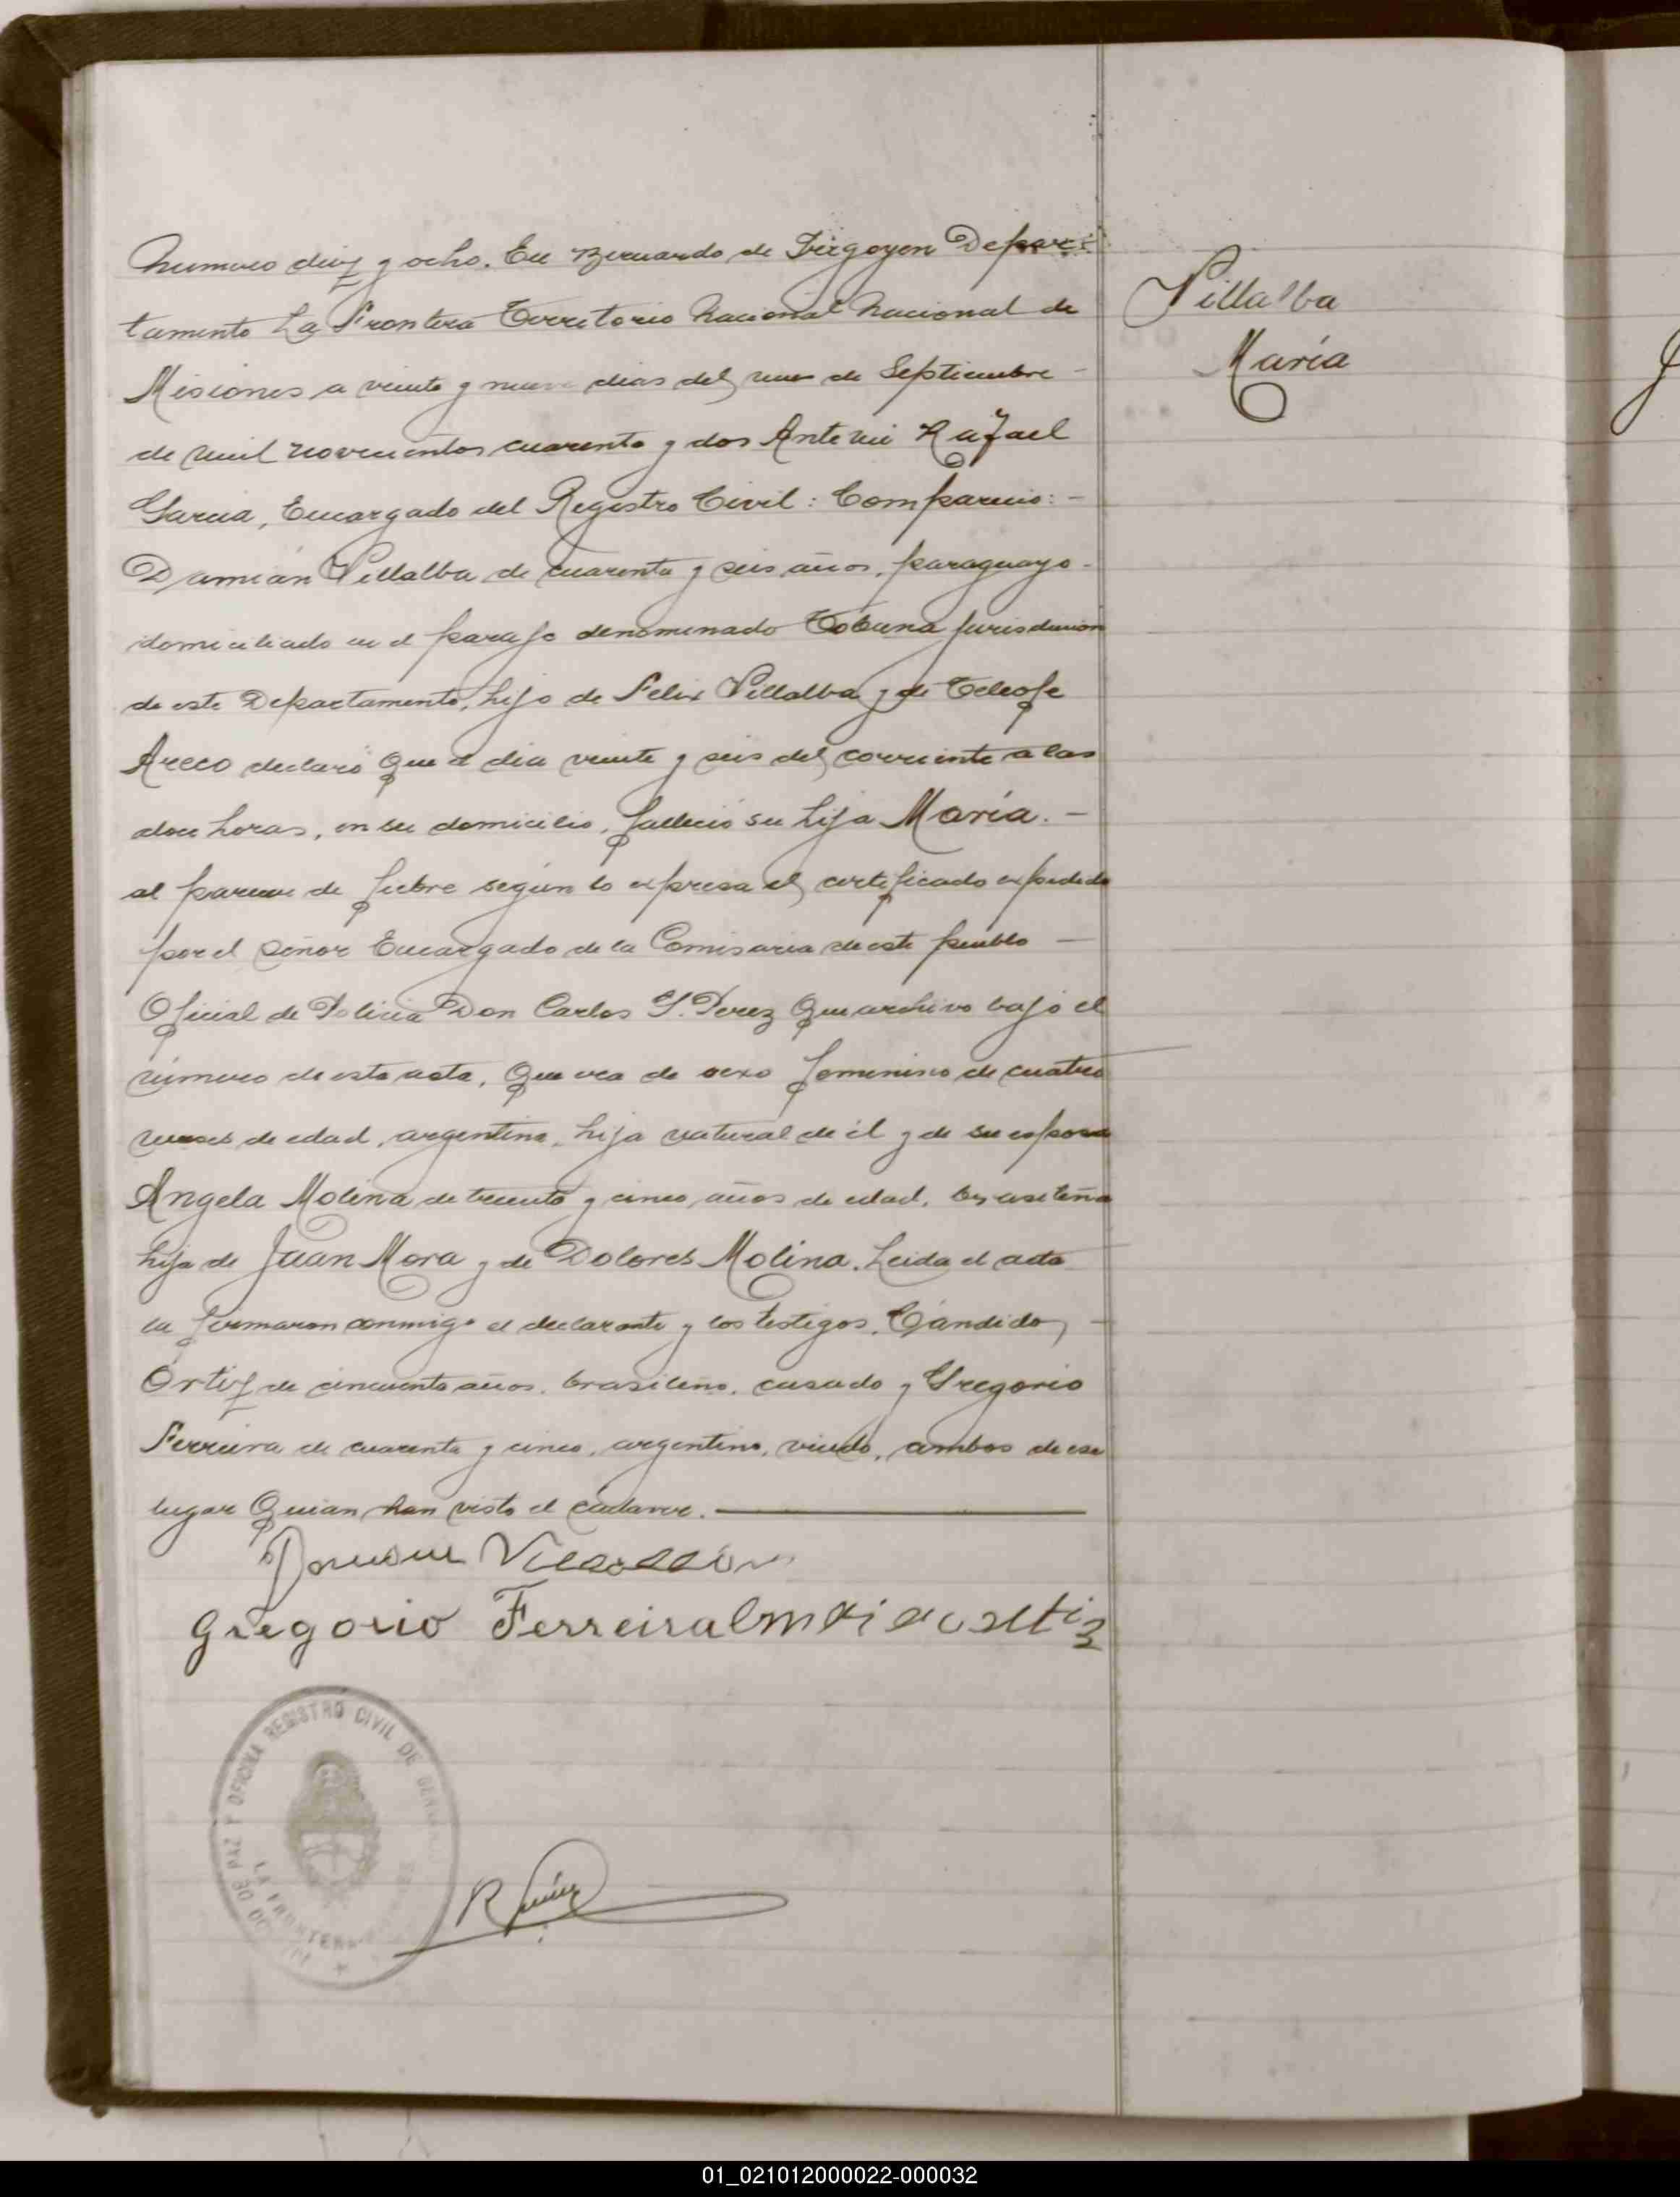 Numero diez y ocho. En Bernardo de Irigoyen Depar-
tamento La Frontera Territorio Nacional Nacional de
Misiones a veinte y nueve dias del mes de Septiembre -
de mil novecientos cuarenta y dos Ante mi Rafael
Garcia, Encargado del Registro Civil: Comparecio: -
Damián Villalba de cuarenta y seis años, paraguayo -
domiciliado en el paraje denominado Tobuna jurisdiccion
de este Departamento, hijo de Felix Villalba y de Teleofe
Areco declaró que el dia veinte y seis del corriente a las
doce horas, en su domicilio, falleció su hija María. -
al parecer de fiebre según lo expresa el certificado expedido
por el Señor Encargado de la Comisaria de este pueblo -
Oficial de Policia Don Carlos S. Perez que archivo bajo el
número de esta acta, que era de sexo femenino de cuatro
meses de edad, argentina, hija natural de él y de su esposa
Angela Molina de treinta y cinco años de edad, brasileña
hija de Juan Mora y de Dolores Molina. Leida el acta
la firmaron conmigo el declarante y los testigos, Cándido -
Ortiz de cincuenta años, brasileño, casado y Gregorio
Ferreira de cuarenta y cinco, argentino, viudo, ambos de ese
lugar Quian han visto el cadaver.
Villalba
María
Gregorio Ferreira
JUZGADO DE PAZ Y OFICINA REGISTRO CIVIL DE
LA FRONTERA
01_021012000022-000032